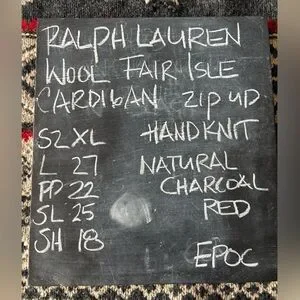 RALPH LAUREN
WOOL FAIR ISLE
CARDIGAN ZIP UP
SZ XL HANDKNIT
L 27 NATURAL
PP 22 CHARCOAL
SL 25 RED
SH 18
EPOC